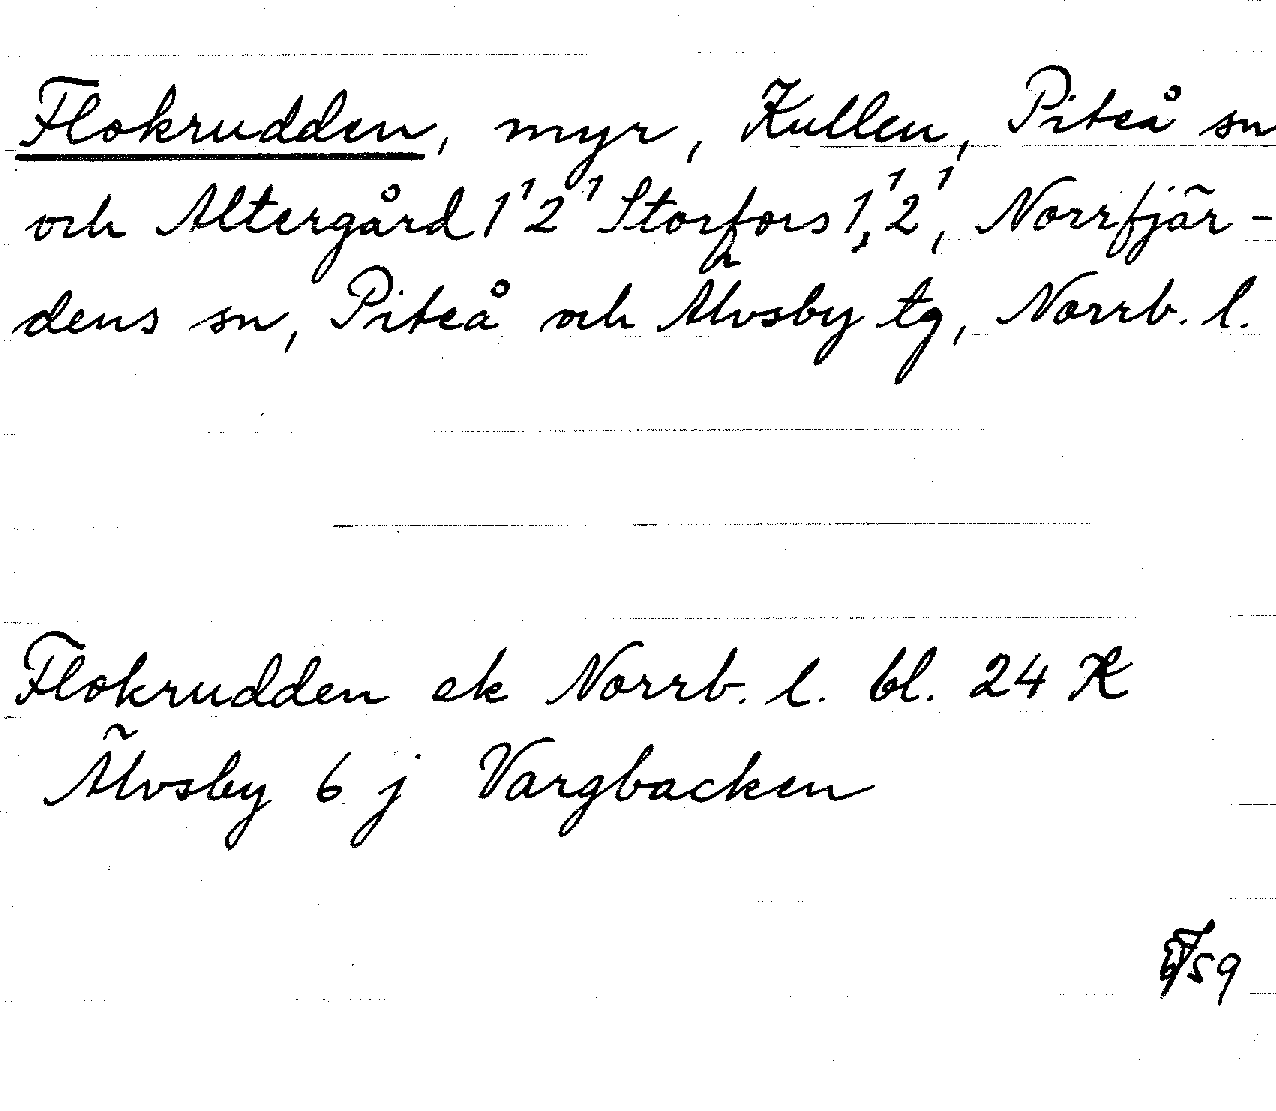 Flokrudden, myr, Kullen, Piteå sn
och Altergård 1¹ 2¹ Storfors 1¹, 2¹, Norrfjär-
dens sn, Piteå och Älvsby tg, Norrb. l.
Flokrudden ek Norrb. l. bl. 24 K
Älvsby 6 j Vargbacken
59